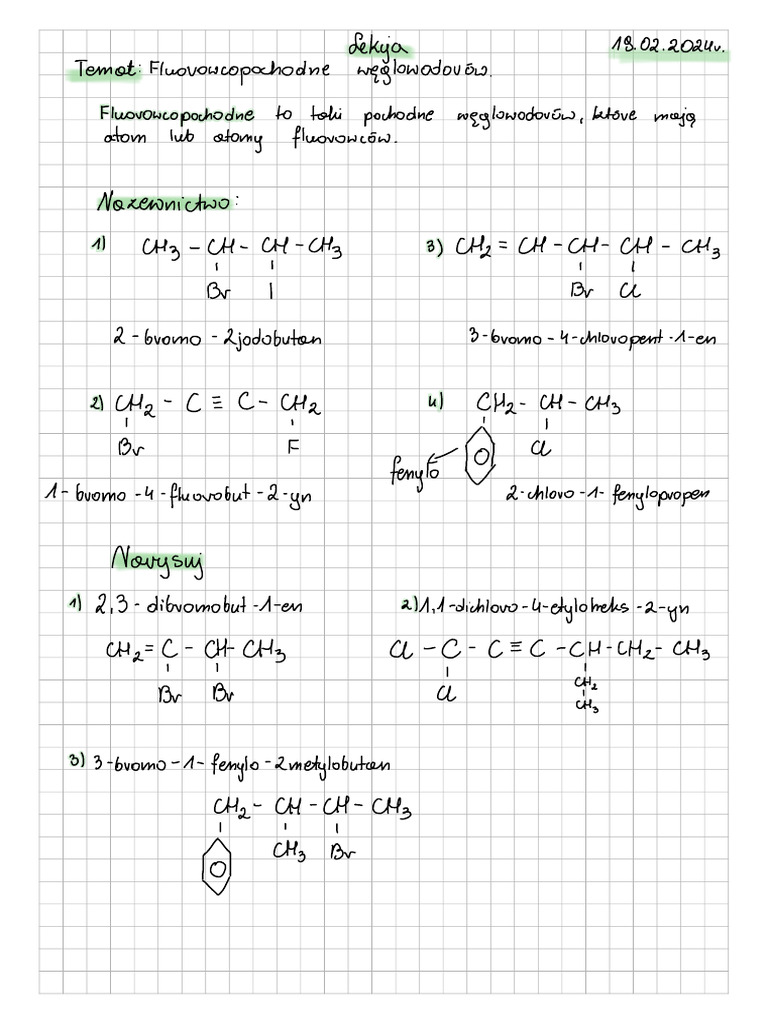 Lekcja 19.02.2024r.
Temat: Fluorowcopochodne węglowodorów.
Fluorowcopochodne to taki pochodne węglowodorów, które mają
atom lub atomy fluorowców.
Nazewnictwo:
1) CH3 - CH - CH - CH3
Br I
2-bromo-2jodobutan
3) CH2 = CH - CH - CH - CH3
Br Cl
3-bromo-4-chloropent-1-en
2) CH2 - C ≡ C - CH2
Br F
1-bromo-4-fluorobut-2-yn
4) CH2 - CH - CH3
Cl
fenylo
2-chloro-1-fenylopropan
Narysuj
1) 2,3-dibromobut-1-en
CH2 = C - CH - CH3
Br Br
2) 1,1-dichloro-4-etyloheks-2-yn
Cl - C - C ≡ C - CH - CH2 - CH3
Cl CH2
CH3
3) 3-bromo-1-fenylo-2metylobutan
CH2 - CH - CH - CH3
CH3 Br